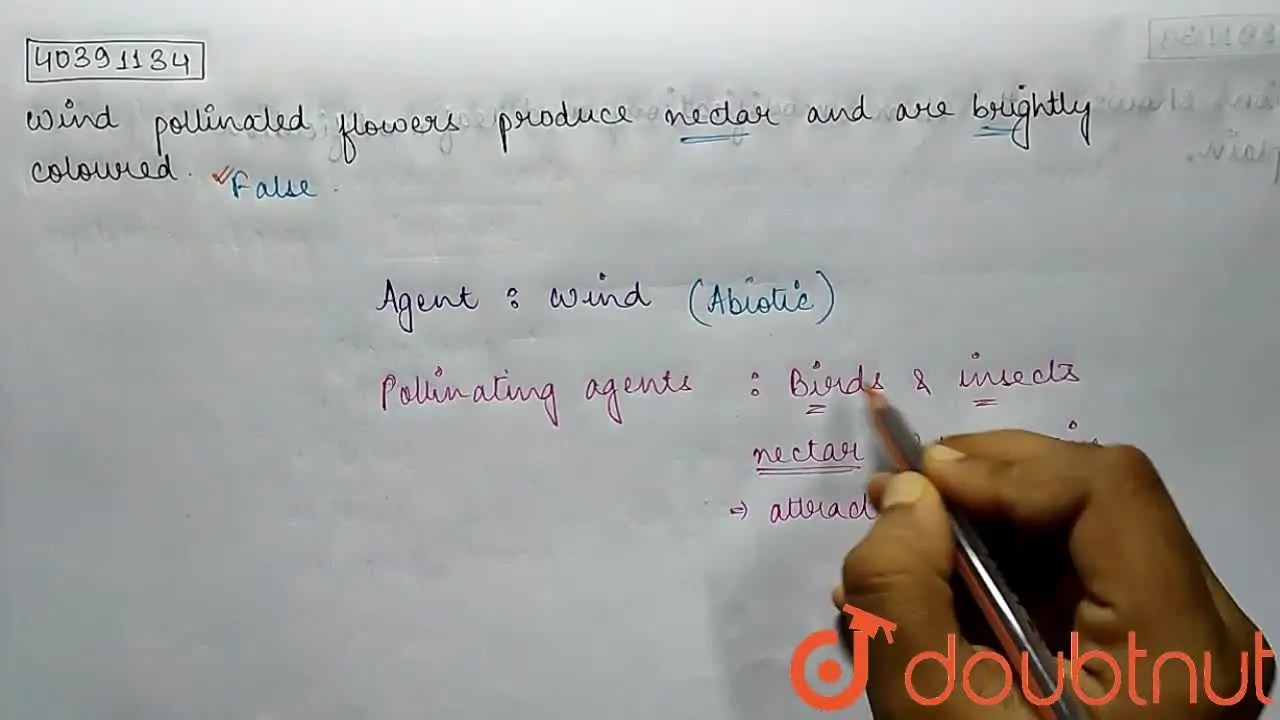 40391134
Wind pollinated flowers produce nectar and are brightly
coloured. ✓False.
Agent : Wind (Abiotic)
Pollinating agents : Birds & insects
nectar
⇒ attract
doubtnut